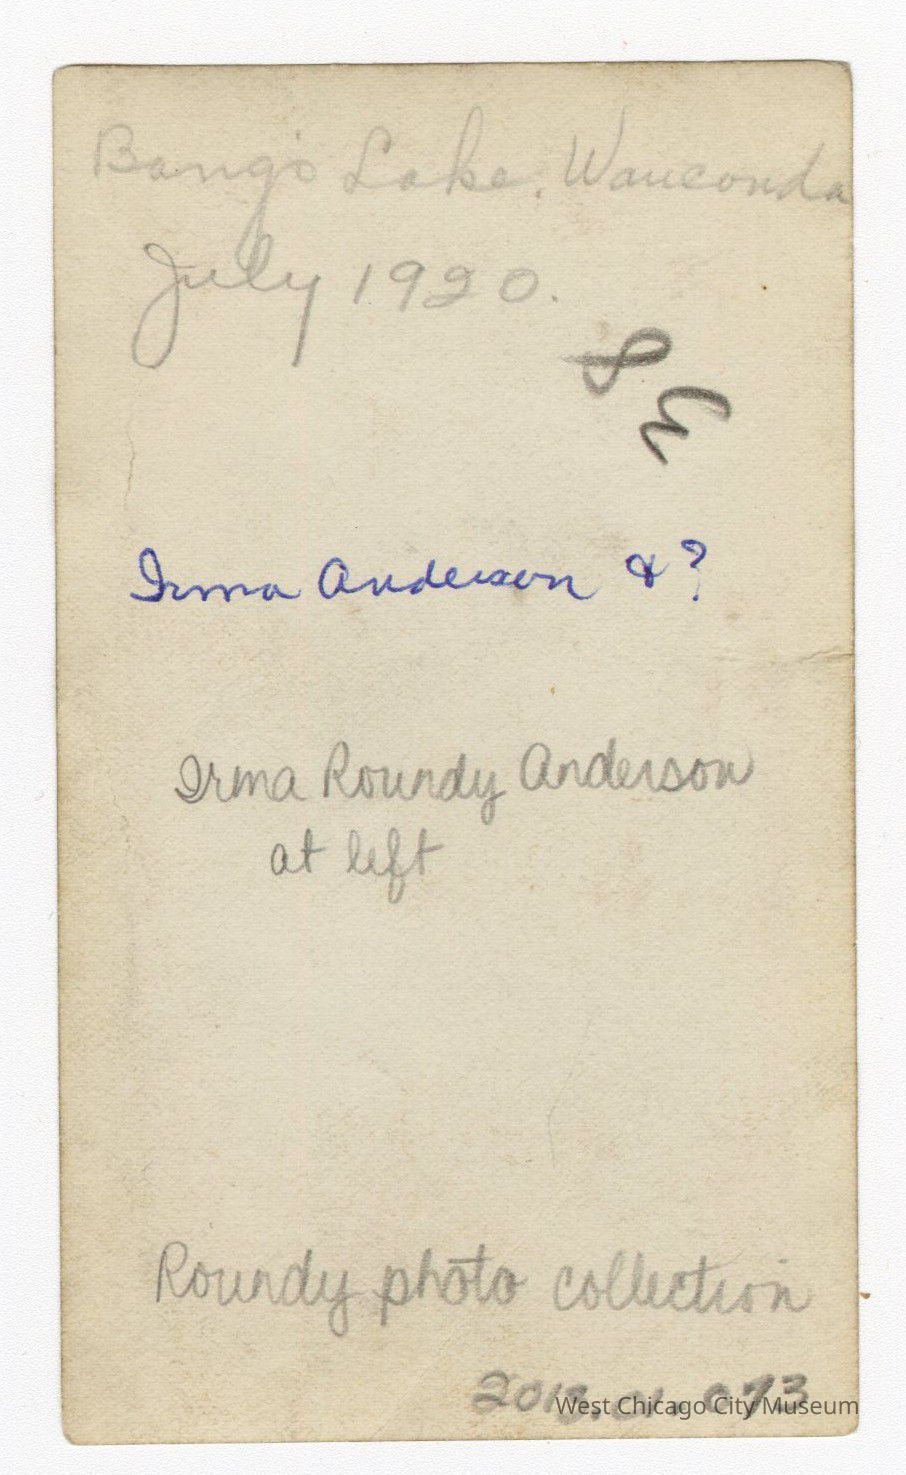 Bang's Lake, Wauconda
July 1920.
Irma Anderson & ?
Irma Roundy Anderson
at left
Roundy photo collection
West Chicago City Museum